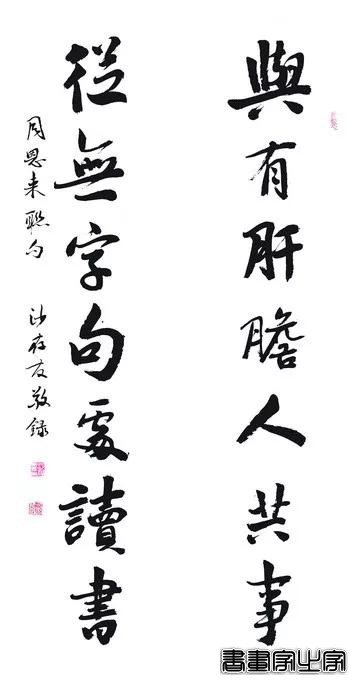 與有肝膽人共事
從無字句處讀書
周恩来聯句 沙在友敬錄
書畫家之家